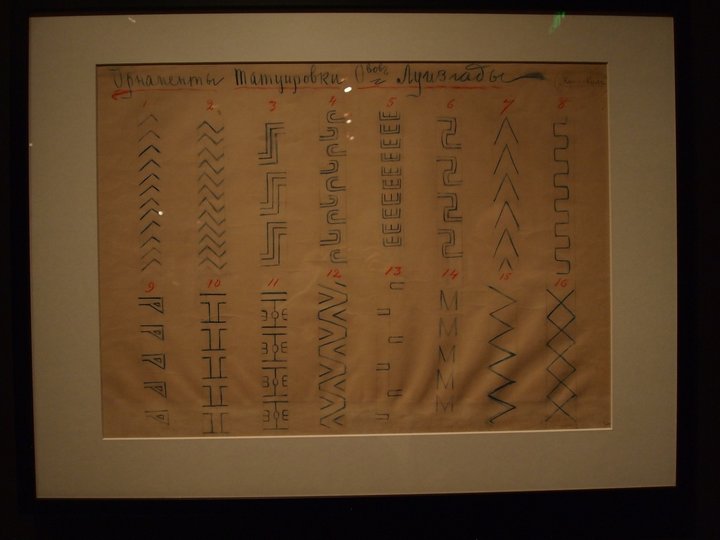 Орнаменты Татуировки Овов Луизгады
1 2 3 4 5 6 7 8
9 10 11 12 13 14 15 16